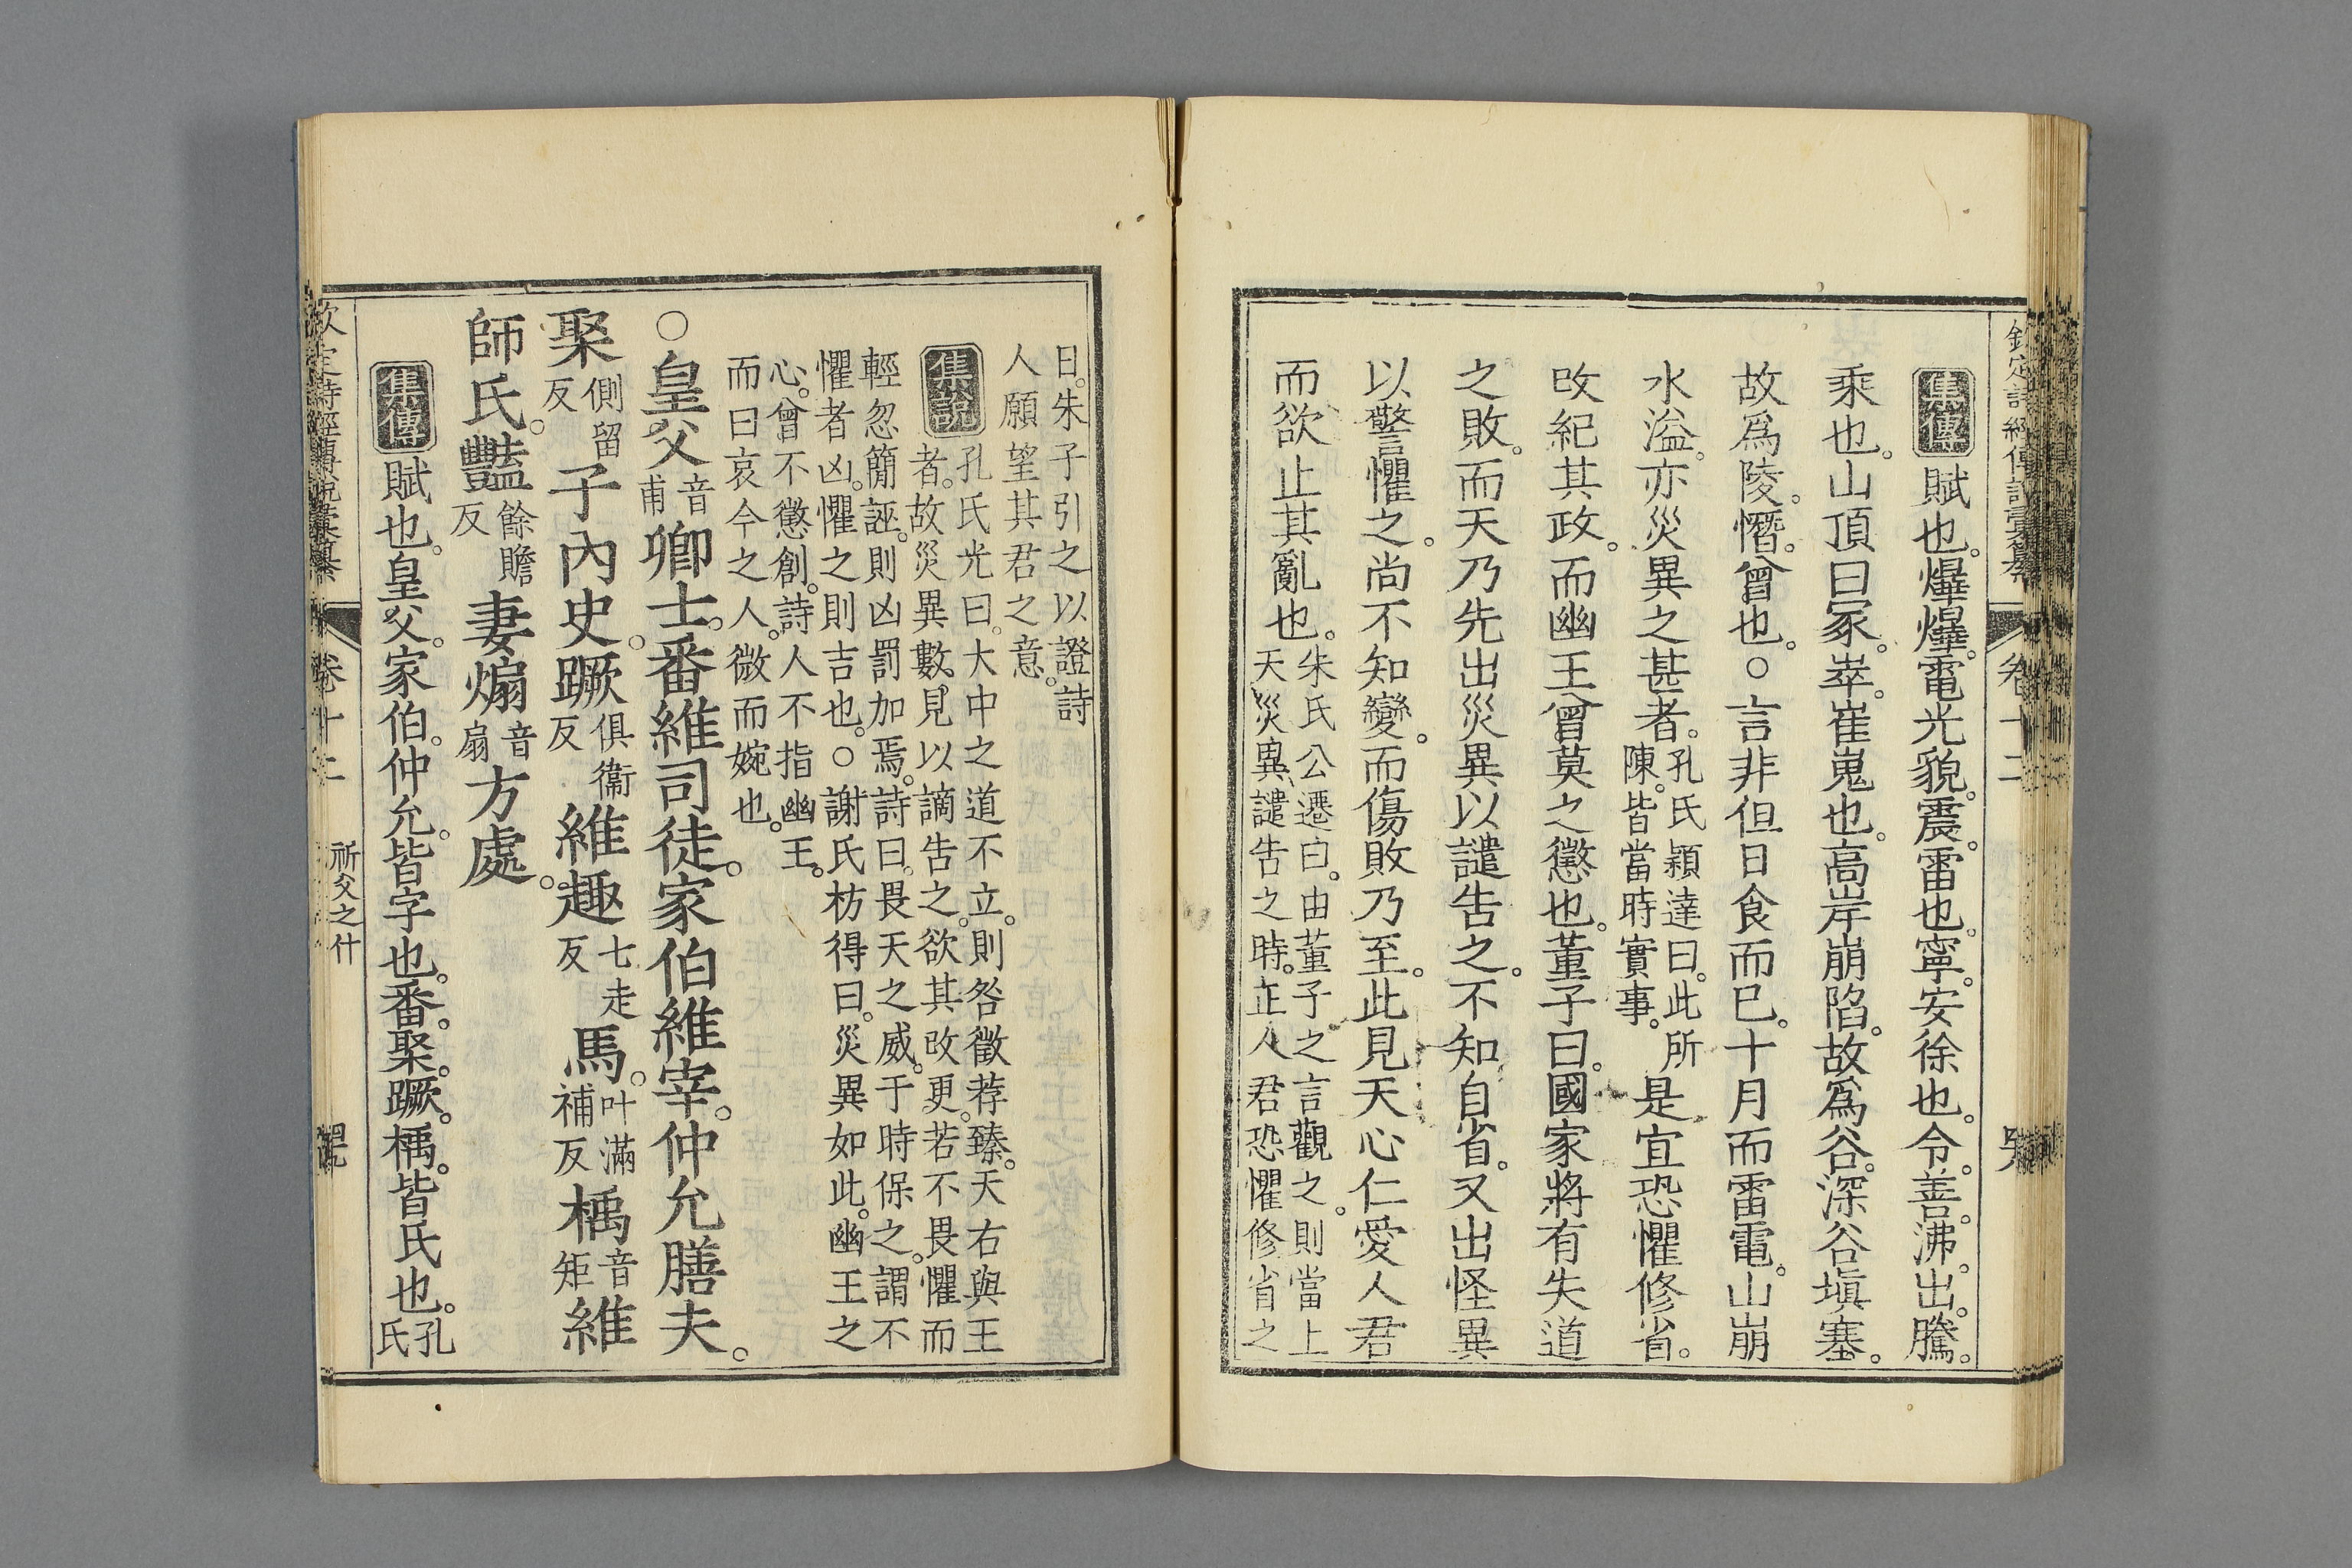 集傳 賦也。爗爗。電光貌。震。雷也。寧。安徐也。令。善。沸。出。騰。
乘也。山頂曰冢。崒。崔嵬也。高岸崩陷。故爲谷。深谷塡塞。
故爲陵。憯。曾也。○言非但日食而已。十月而雷電。山崩
水溢。亦災異之甚者。孔氏穎達曰。此所
陳。皆當時實事。是宜恐懼修省。
改紀其政。而幽王曾莫之懲也。董子曰。國家將有失道
之敗。而天乃先出災異以譴告之。不知自省。又出怪異
以警懼之。尚不知變。而傷敗乃至。此見天心仁愛人君
而欲止其亂也。朱氏公遷曰。由董子之言觀之。則當上
天災異譴告之時。正人君恐懼修省之
日。朱子引之以證詩
人願望其君之意。
集說 孔氏光曰。大中之道不立。則咎徵荐臻。天右與王
者。故災異數見。以謫告之。欲其改更。若不畏懼。而
輕忽簡誣。則凶罰加焉。詩曰。畏天之威。于時保之。謂不
懼者凶。懼之則吉也。○謝氏枋得曰。災異如此。幽王之
心。曾不懲創。詩人不指幽王。
而曰哀今之人。微而婉也。
○皇父音
甫卿士。番維司徒。家伯維宰。仲允膳夫。
聚側留
反子內史。蹶俱衞
反維趣七走
反馬。叶滿
補反楀音
矩維
師氏。豔餘贍
反妻煽音
扇方處。
集傳 賦也。皇父。家伯。仲允。皆字也。番。聚。蹶。楀。皆氏也。孔
氏
卷十二
祈父之什